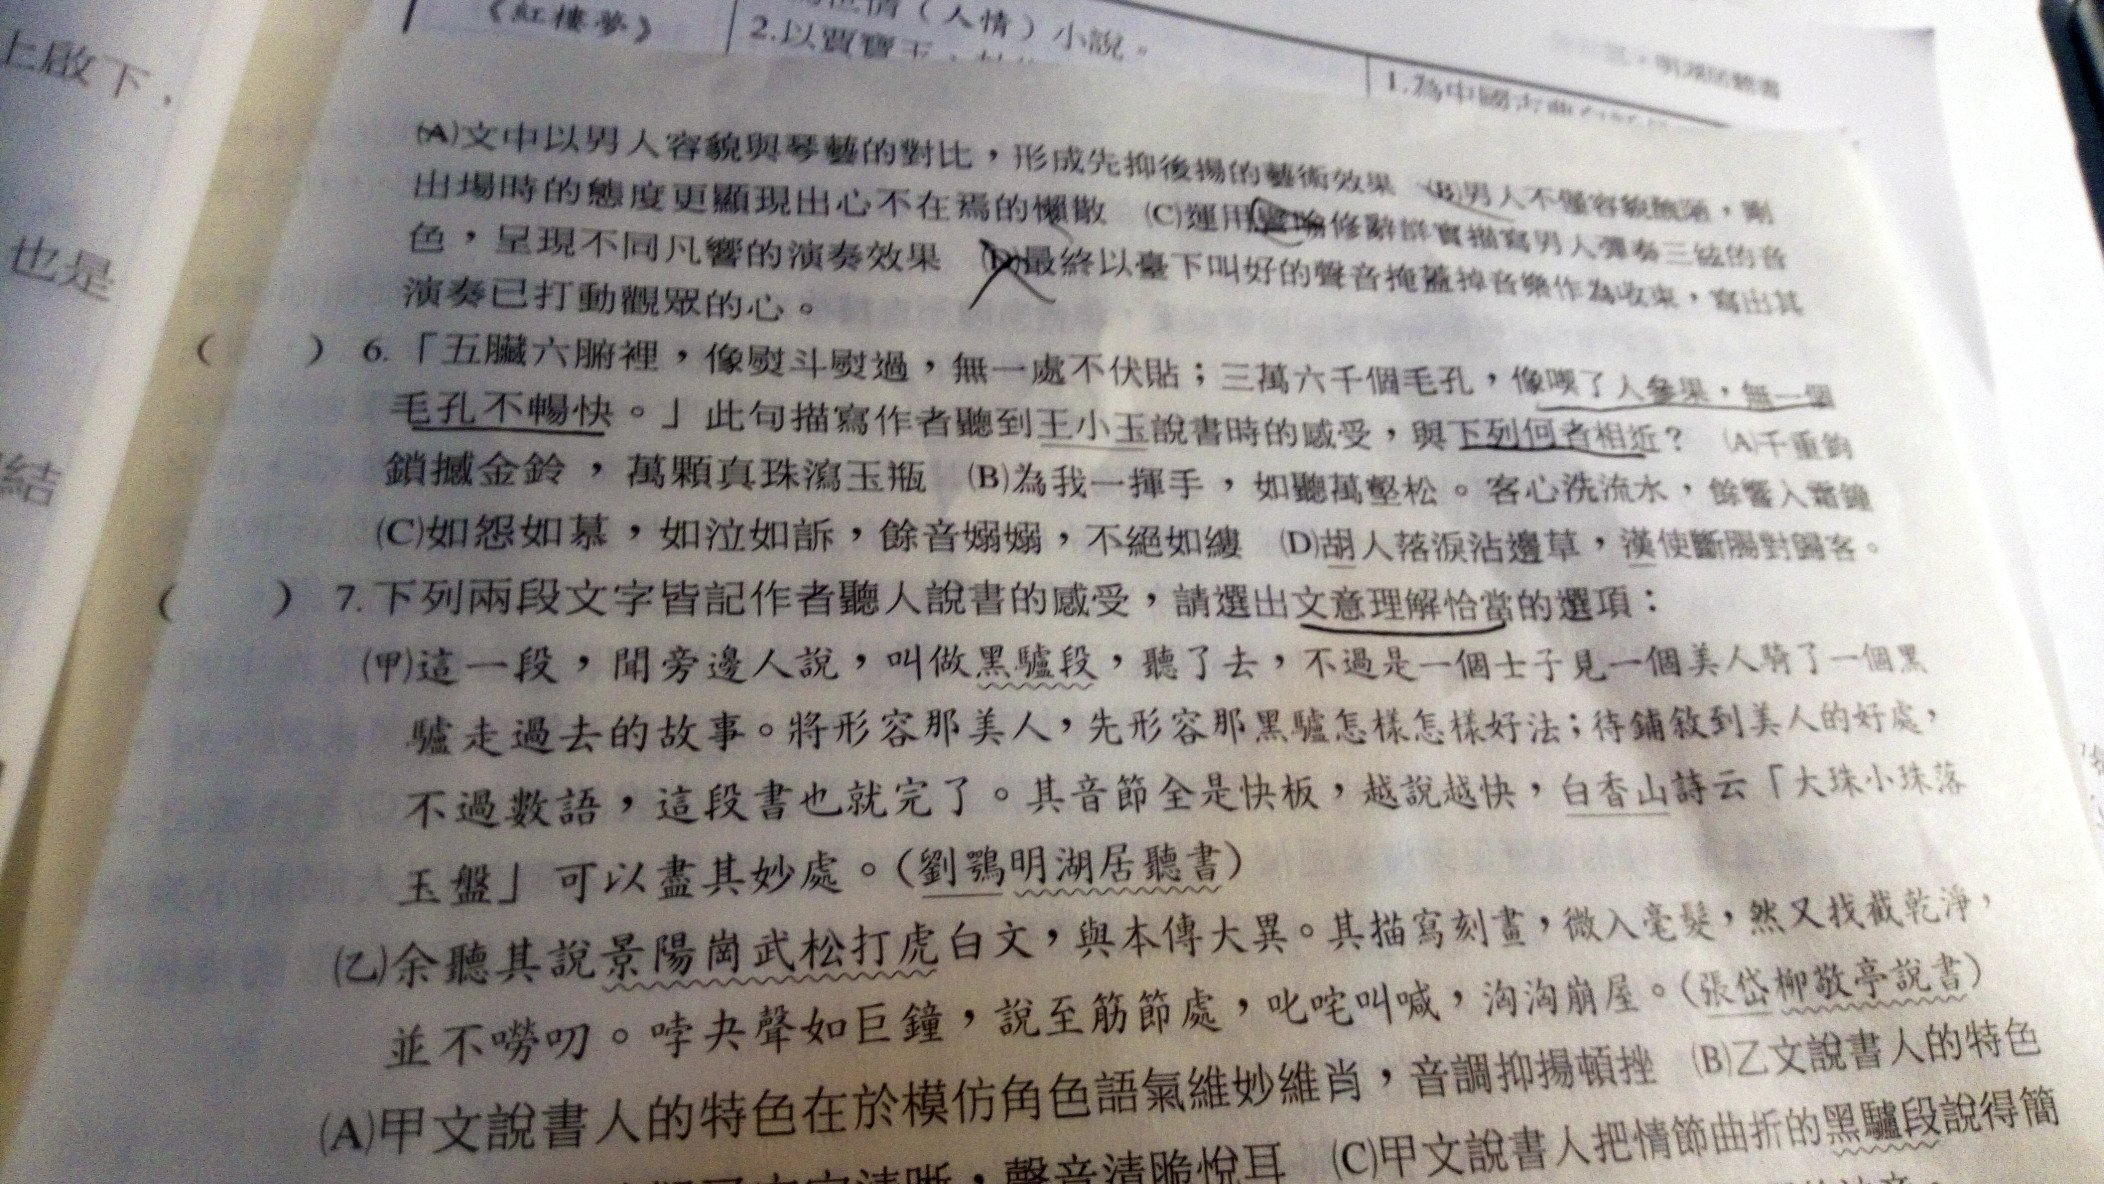 上啟下，
也是
結
《紅樓夢》
（人情）小說。
2.以賈寶玉、
1.為中國古典
明湖居聽書
(A)文中以男人容貌與琴藝的對比，形成先抑後揚的藝術效果 (B)男人不僅容貌醜陋，剛
出場時的態度更顯現出心不在焉的懶散 (C)運用譬喻修辭詳實描寫男人彈奏三絃的音
色，呈現不同凡響的演奏效果 (D)最終以臺下叫好的聲音掩蓋掉音樂作為收束，寫出其
演奏已打動觀眾的心。
（ ）6.「五臟六腑裡，像熨斗熨過，無一處不伏貼；三萬六千個毛孔，像喫了人參果，無一個
毛孔不暢快。」此句描寫作者聽到王小玉說書時的感受，與下列何者相近？ (A)千重鉤
鎖撼金鈴，萬顆真珠瀉玉瓶 (B)為我一揮手，如聽萬壑松。客心洗流水，餘響入霜鐘
(C)如怨如慕，如泣如訴，餘音嫋嫋，不絕如縷 (D)胡人落淚沾邊草，漢使斷腸對歸客。
（ ）7.下列兩段文字皆記作者聽人說書的感受，請選出文意理解恰當的選項：
(甲)這一段，聞旁邊人說，叫做黑驢段，聽了去，不過是一個士子見一個美人騎了一個黑
驢走過去的故事。將形容那美人，先形容那黑驢怎樣怎樣好法；待鋪敘到美人的好處，
不過數語，這段書也就完了。其音節全是快板，越說越快，白香山詩云「大珠小珠落
玉盤」可以盡其妙處。（劉鶚明湖居聽書）
(乙)余聽其說景陽崗武松打虎白文，與本傳大異。其描寫刻畫，微入毫髮，然又找截乾淨，
並不嘮叨。哱夬聲如巨鐘，說至筋節處，叱咤叫喊，洶洶崩屋。（張岱柳敬亭說書）
(A)甲文說書人的特色在於模仿角色語氣維妙維肖，音調抑揚頓挫 (B)乙文說書人的特色
清晰，聲音清脆悅耳 (C)甲文說書人把情節曲折的黑驢段說得簡